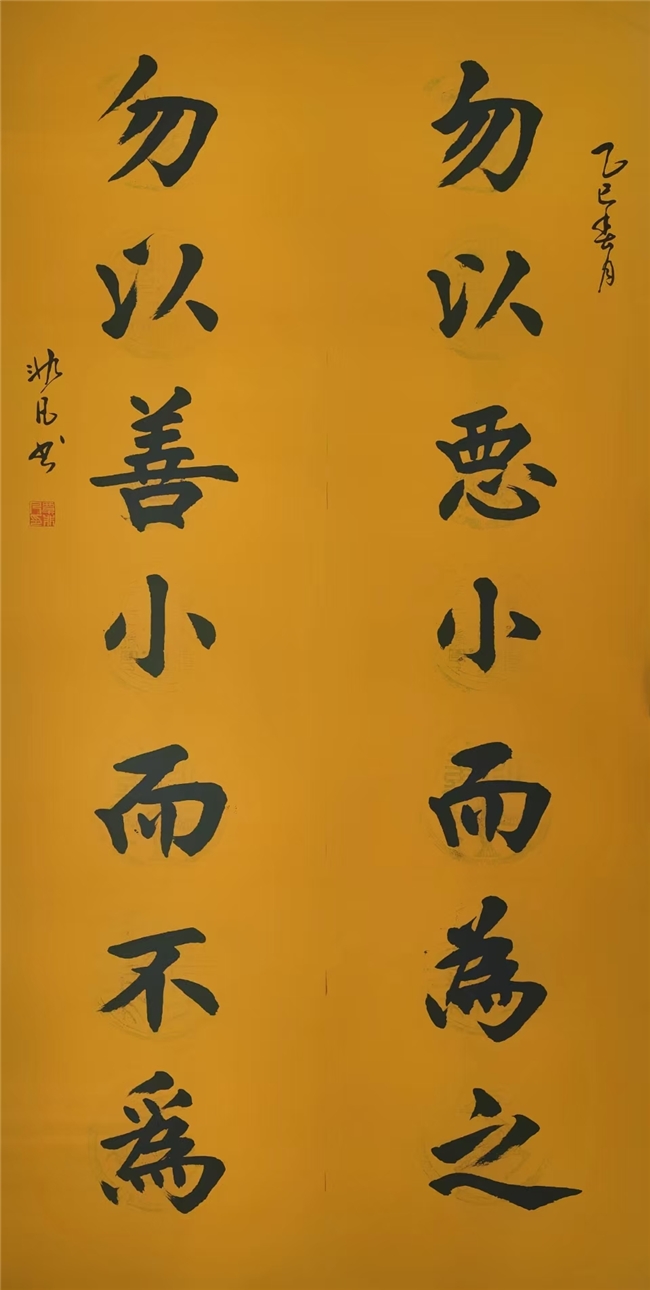 乙巳春月
勿以恶小而為之
勿以善小而不為
凡书